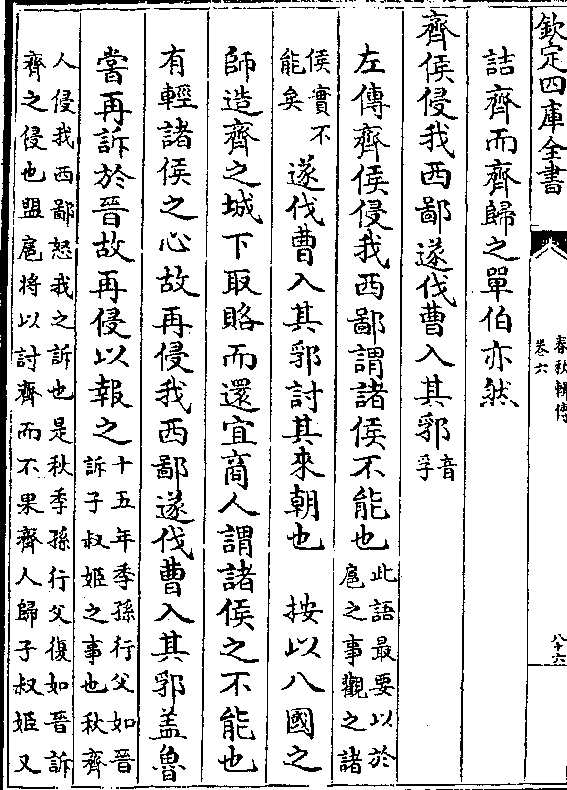 欽定四庫全書
春秋輯傳
卷六
八十六
詰齊而齊歸之單伯亦然
齊侯侵我西鄙遂伐曹入其郛音
孚
左傳齊侯侵我西鄙謂諸侯不能也此語最要以於
扈之事觀之諸
侯實不
能矣
遂伐曹入其郛討其來朝也 按以八國之
師造齊之城下取賂而還宜商人謂諸侯之不能也
有輕諸侯之心故再侵我西鄙遂伐曹入其郛盖魯
嘗再訴於晉故再侵以報之十五年季孫行父如晉
訴子叔姬之事也秋齊
人侵我西鄙怒我之訴也是秋季孫行父復如晉訴
齊之侵也盟扈将以討齊而不果齊人歸子叔姬又